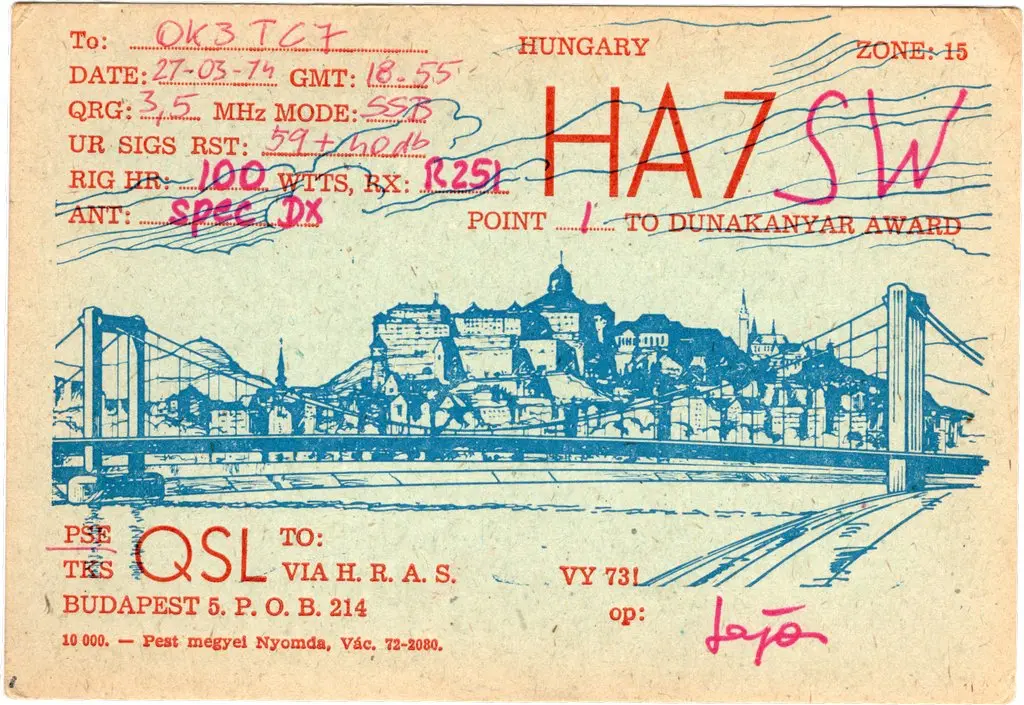 To: OK3TC7
DATE: 27-03-74 GMT: 18-55
QRG: 3,5 MHz MODE: SSB
UR SIGS RST: 59+40db
RIG HR: 100 WTTS, RX: R251
ANT: spec DX
HUNGARY ZONE: 15
HA7SW
POINT 1 TO DUNAKANYAR AWARD
PSE QSL TO:
TKS VIA H. R. A. S.
BUDAPEST 5. P. O. B. 214
10 000. — Pest megyei Nyomda, Vác. 72-2080.
VY 73!
op: